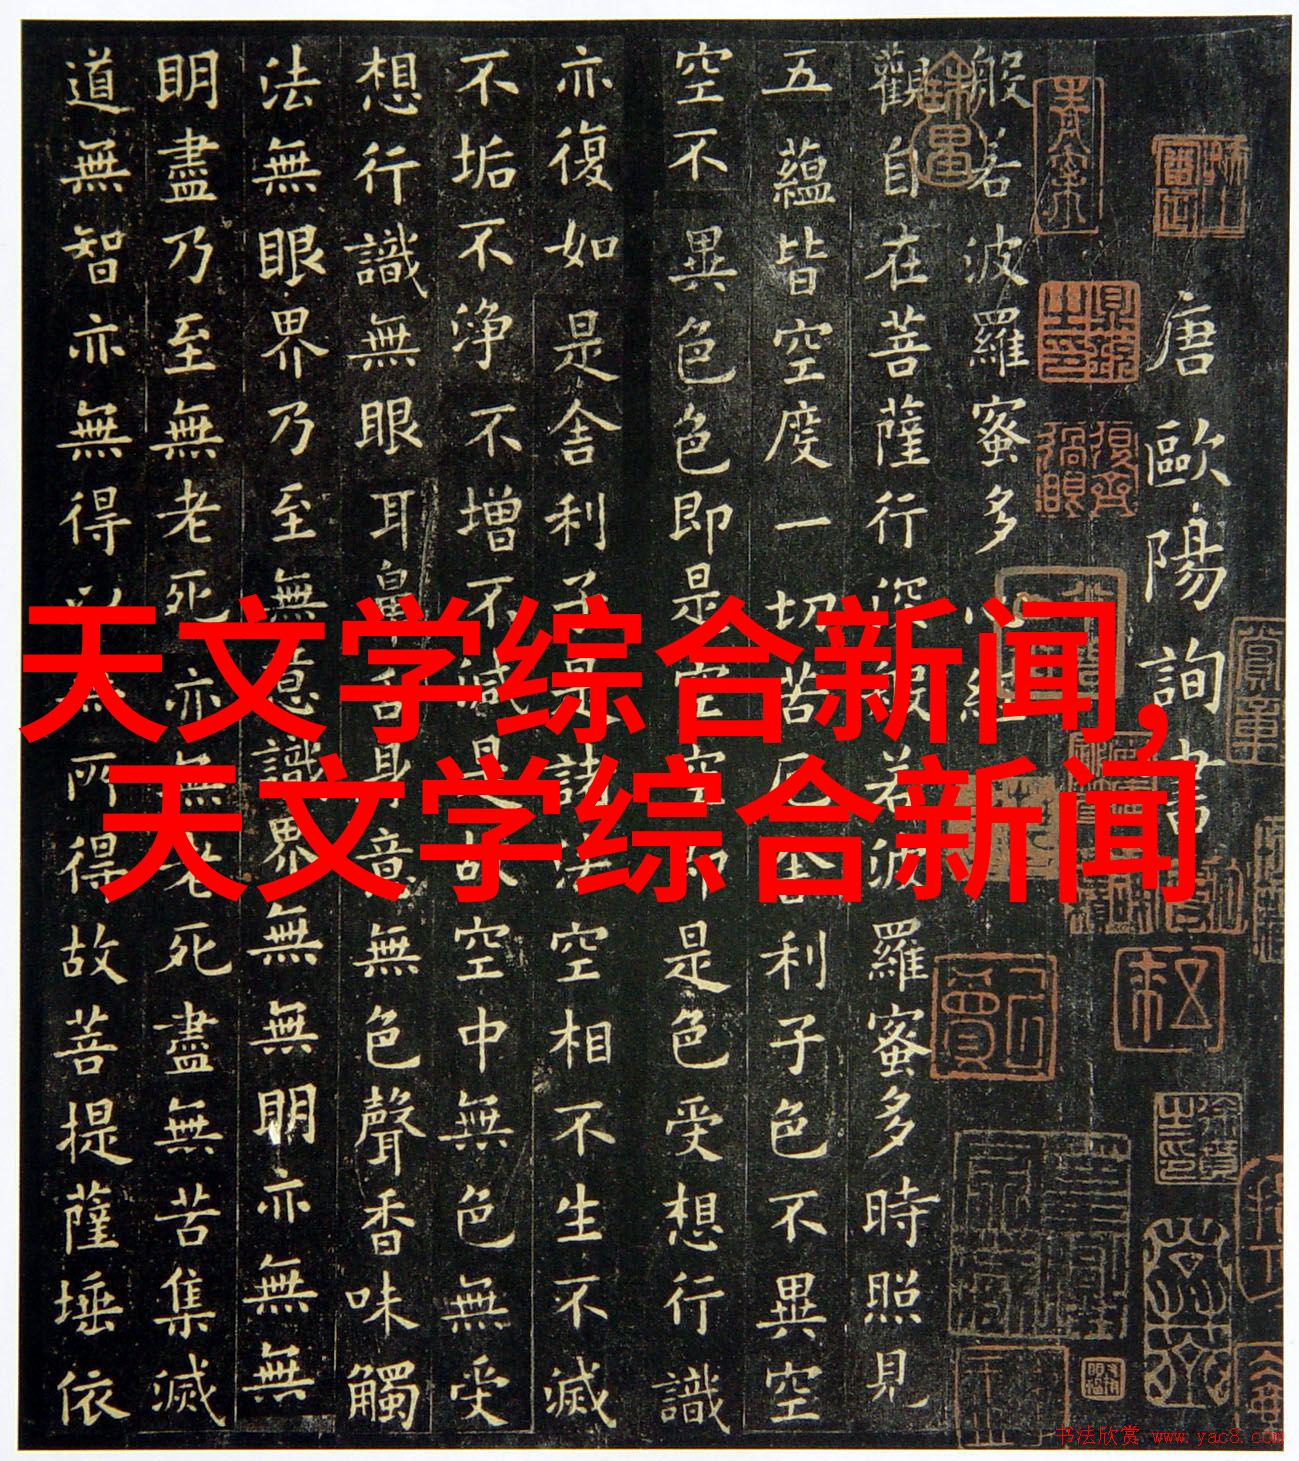 唐歐陽詢書
般若波羅蜜多心經
觀自在菩薩行深般若波羅蜜多時照見
五蘊皆空度一切苦厄舍利子色不異空
空不異色色即是空空即是色受想行識
亦復如是舍利子是諸法空相不生不滅
不垢不淨不增不減是故空中無色無受
想行識無眼耳鼻舌身意無色聲香味觸
法無眼界乃至無意識界無無明亦無無
明盡乃至無老死亦無老死盡無苦集滅
道無智亦無得以無所得故菩提薩埵依
天文学综合新闻,
天文学综合新闻
书法欣赏 www.yac8.com